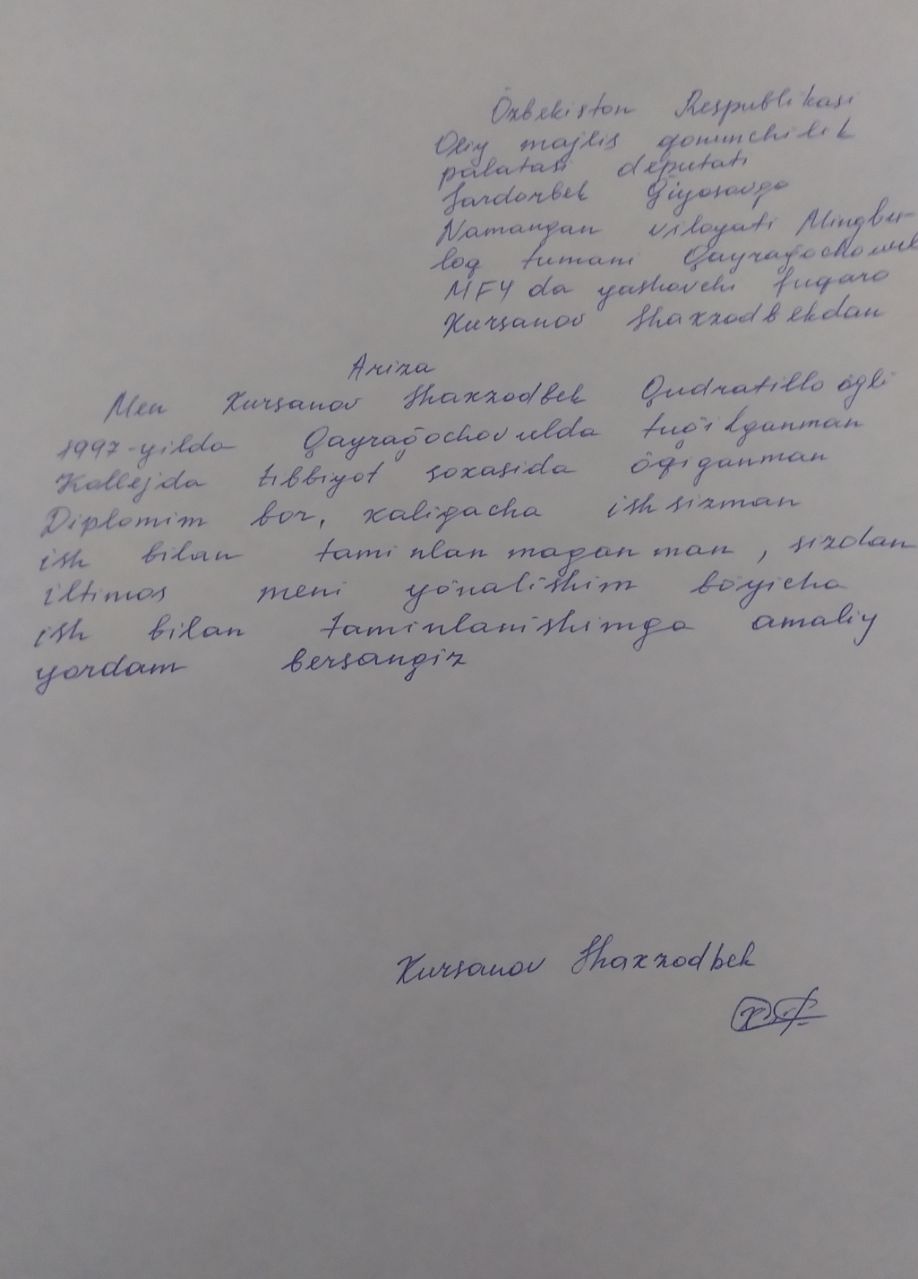 Özbekiston Respublikasi
Oliy majlis qonunchilik
palatasi deputati
Sardorbek Qiyosovga
Namangan viloyati Mingbu-
loq tumani Qayrağochovul
MFY da yashovchi fuqaro
Xursanov Shaxzodbekdan
Ariza
Men Xursanov Shaxzodbek Qudratillo ögli
1997-yilda Qayrağochovulda tuği lganman
Kollejda tibbiyot soxasida öqiganman
Diplomim bor, xaligacha ish sizman
ish bilan tami nlan magan man, sizdan
iltimos meni yönalishim böyicha
ish bilan taminlanishimga amaliy
yordam bersangiz
Xursanov Shaxzodbek